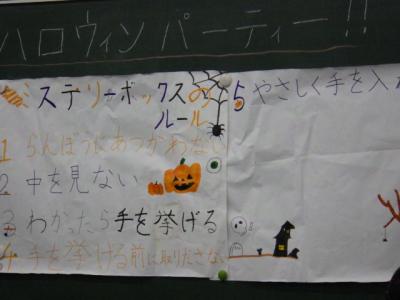 ハロウィンパーティー!!
ミステリーボックスの
ルール
1 らんぼうにあつかわない
2 中を見ない
3 わかったら手を挙げる
4 手を挙げる前に取りださない
5 やさしく手を入